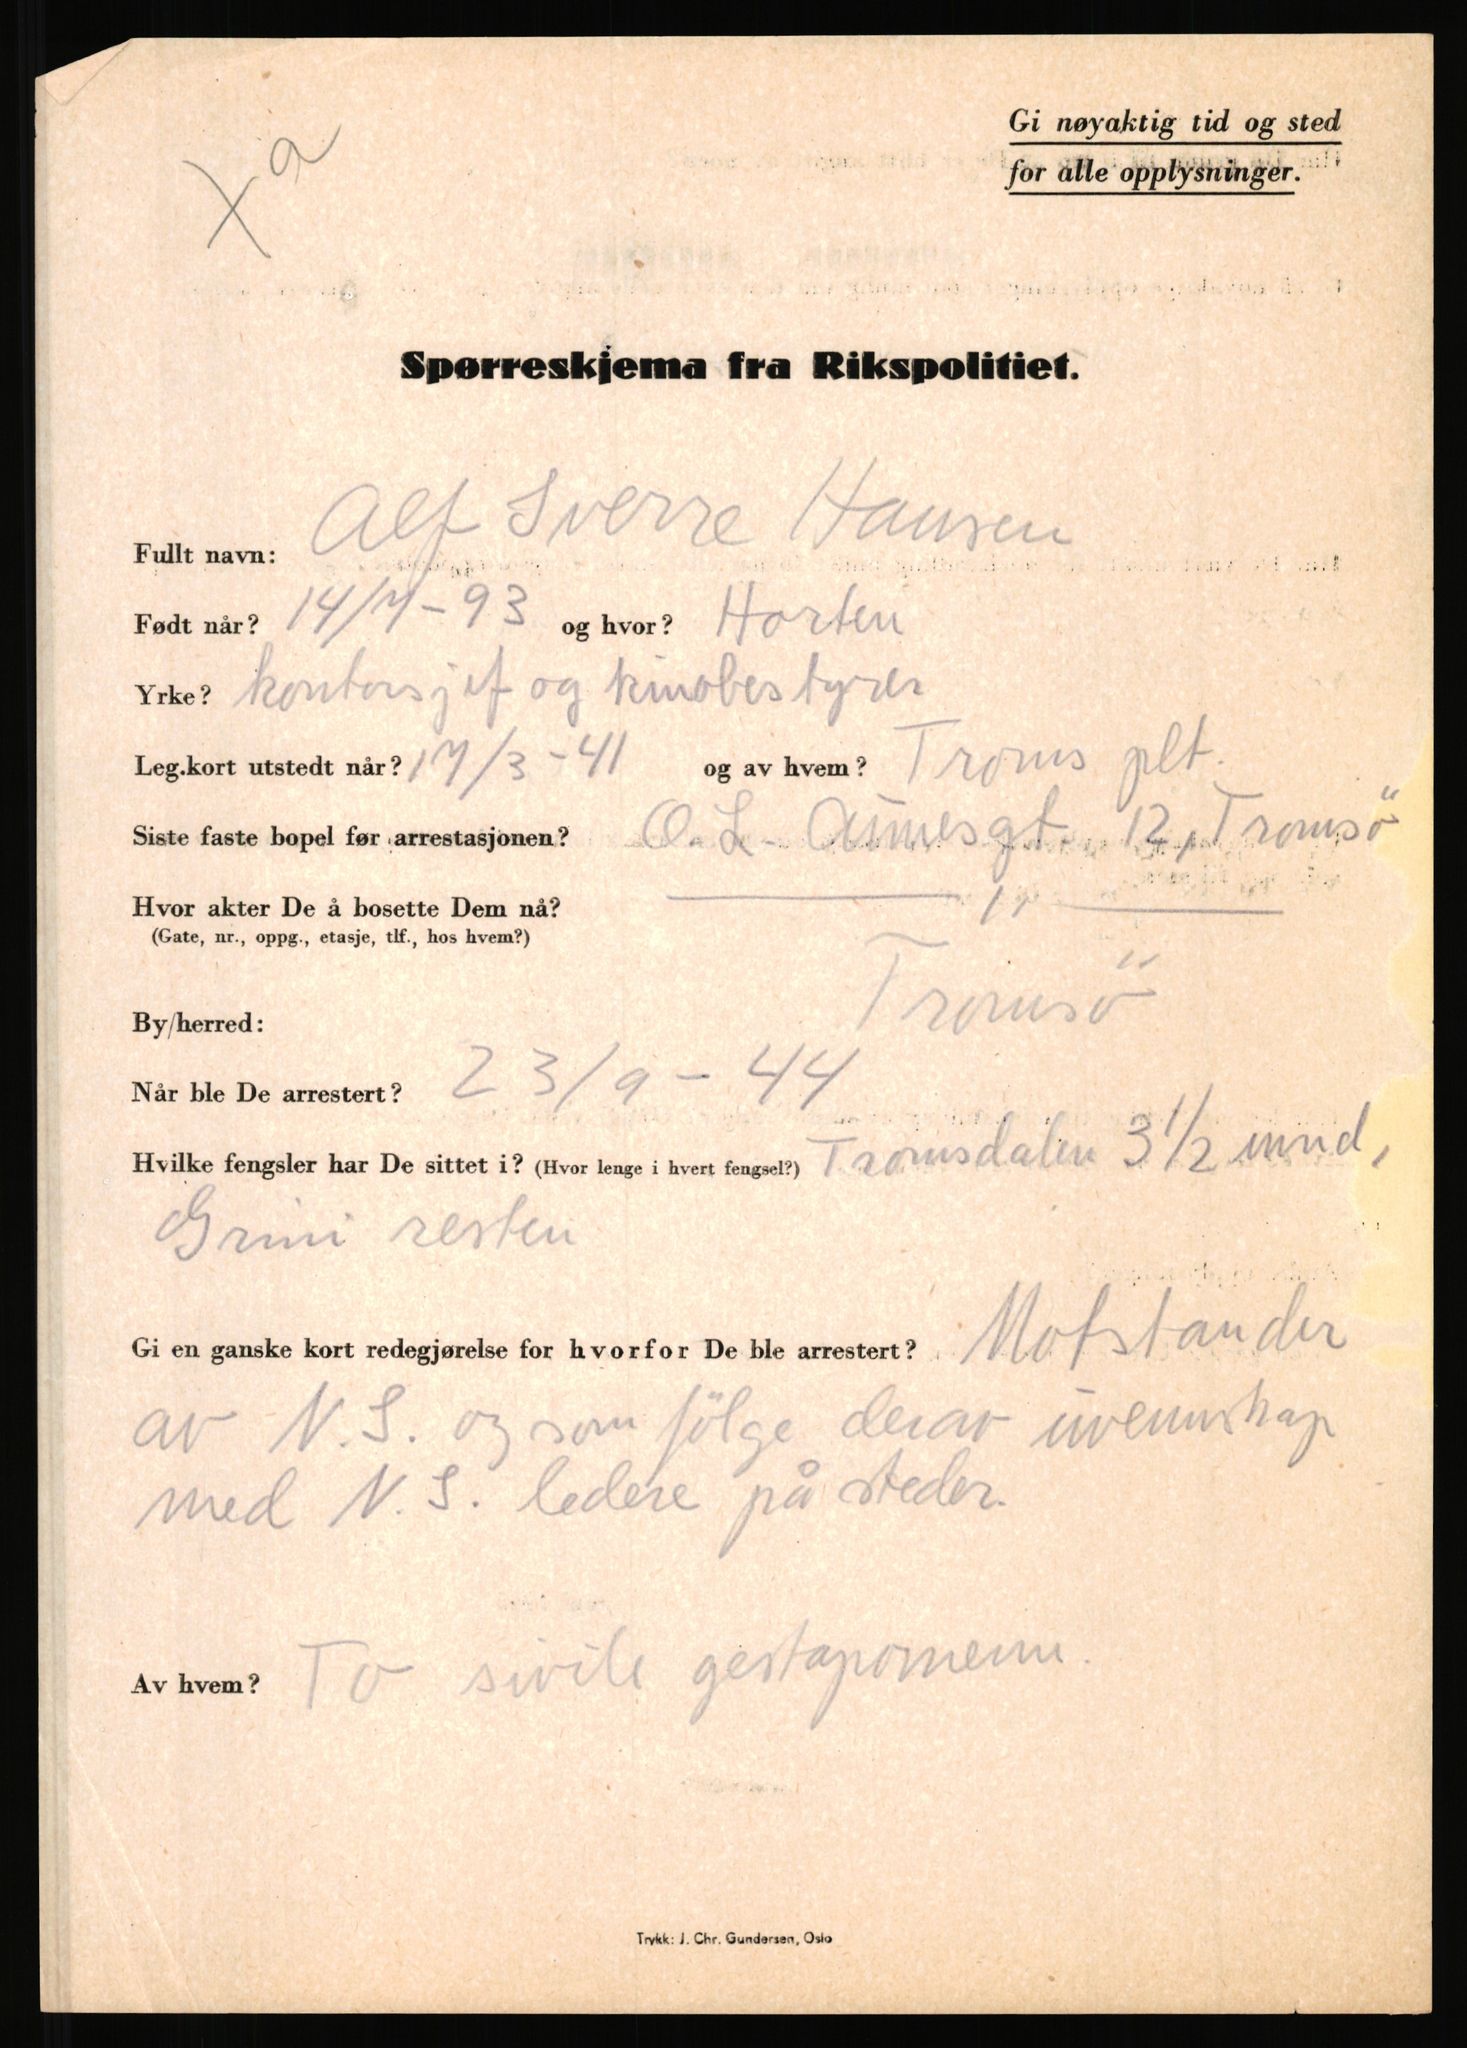 Xa
Gi nøyaktig tid og sted
for alle opplysninger.
Spørreskjema fra Rikspolitiet.
Fullt navn: Alf Sverre Hansen
Født når? 14/7-93 og hvor? Horten
Yrke? kontorsjef og kinobestyrer
Leg.kort utstedt når? 17/3-41 og av hvem? Troms plt.
Siste faste bopel før arrestasjonen? O.L. Aunesgt. 12, Tromsö
Hvor akter De å bosette Dem nå? — " —
(Gate, nr., oppg., etasje, tlf., hos hvem?)
By/herred: Tromsö
Når ble De arrestert? 23/9-44
Hvilke fengsler har De sittet i? (Hvor lenge i hvert fengsel?) Tromsdalen 3 1/2 mnd,
Grini resten
Gi en ganske kort redegjørelse for hvorfor De ble arrestert? Motstander
av N.S. og som fölge derav uvennskap
med N.S. ledere på steder.
Av hvem? To sivile gestapomenn.
Trykk: J. Chr. Gundersen, Oslo